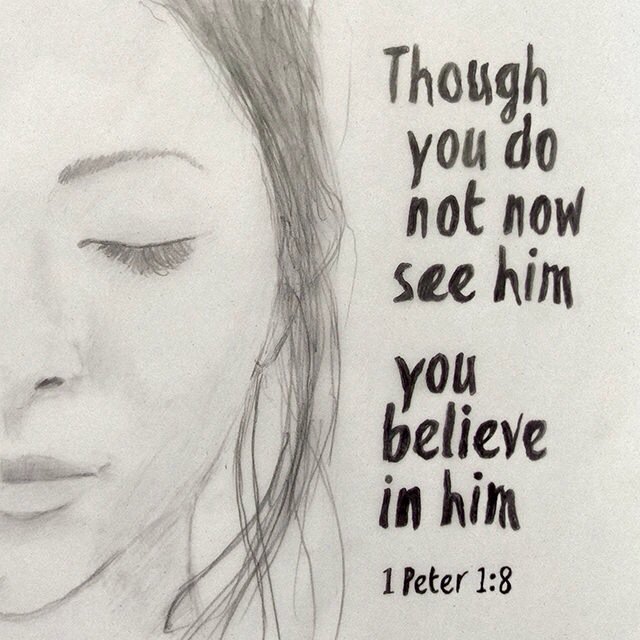 Though
you do
not now
see him
you
believe
in him
1 Peter 1:8